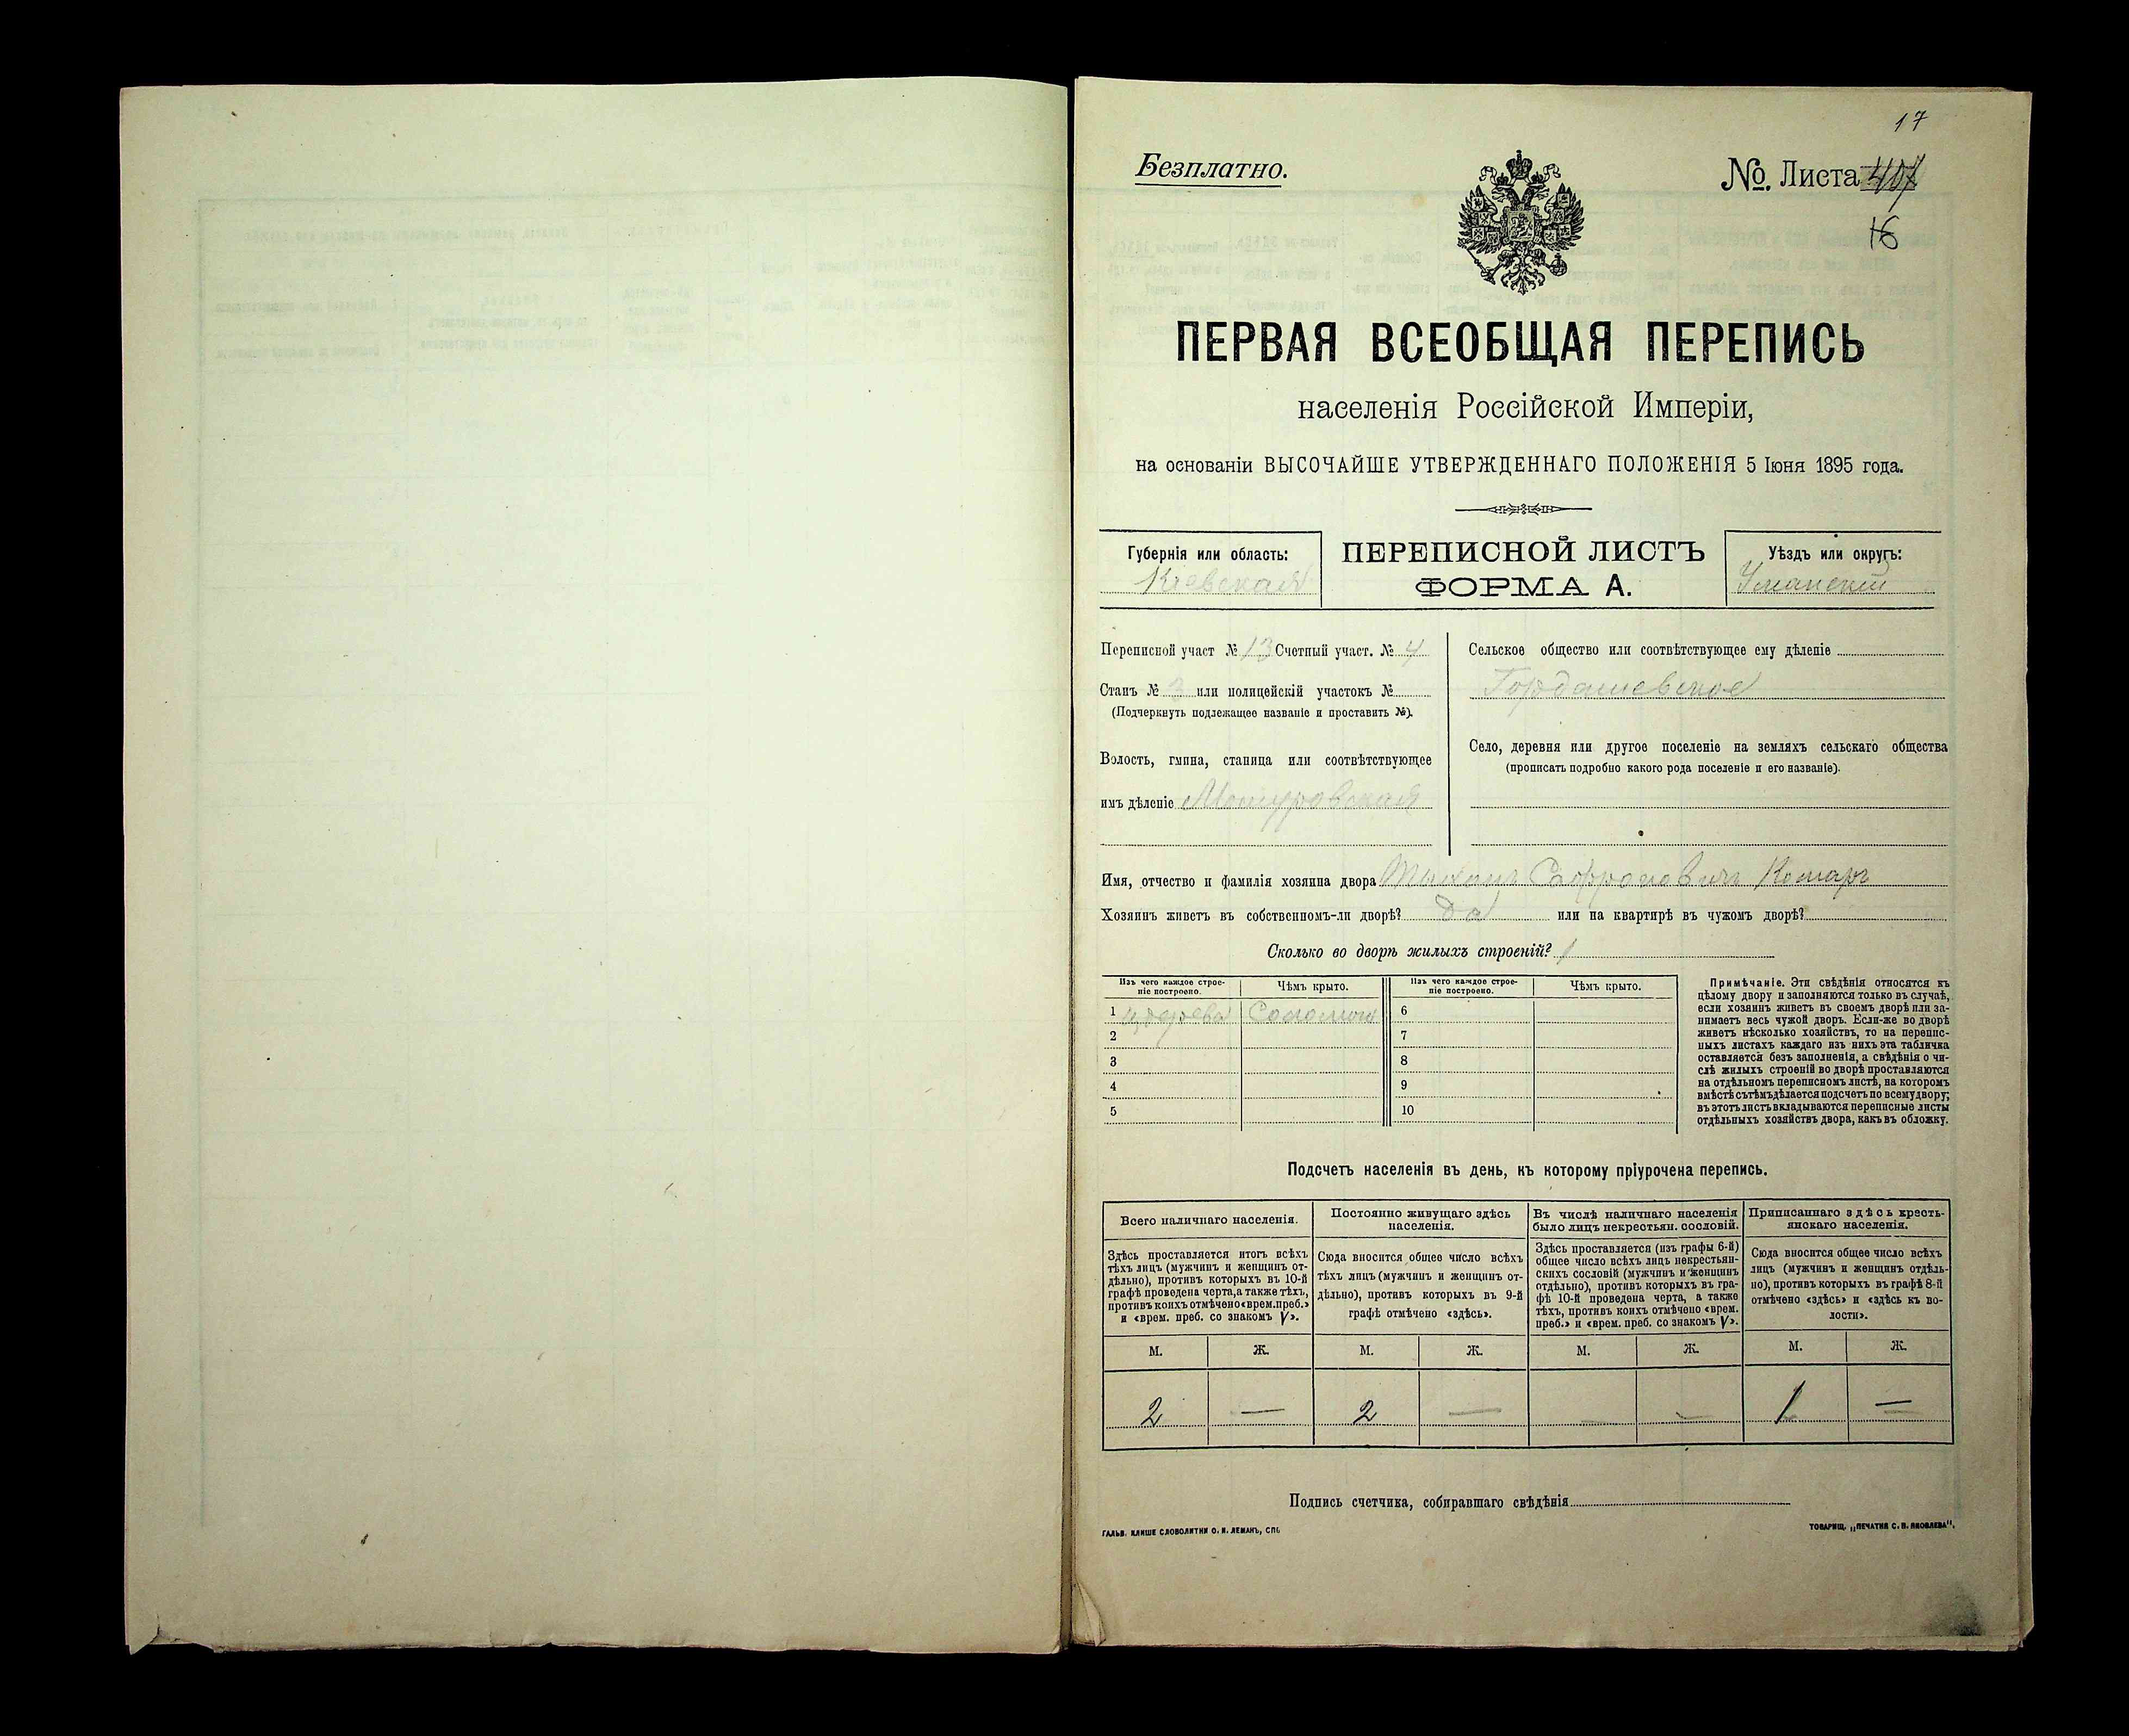 17
Безплатно.
№. Листа
16
ПЕРВАЯ ВСЕОБЩАЯ ПЕРЕПИСЬ
населенія Россійской Имперіи,
на основаніи ВЫСОЧАЙШЕ УТВЕРЖДЕННАГО ПОЛОЖЕНІЯ 5 Іюня 1895 года.
Губернія или область:
Кіевская
ПЕРЕПИСНОЙ ЛИСТЪ
ФОРМА А.
Уѣздъ или округъ:
Уманскій
Переписной участ № 13 Счетный участ. № 4
Станъ № 3 или полицейскій участокъ №
(Подчеркнуть подлежащее названіе и проставить №).
Волость, гмина, станица или соотвѣтствующее
имъ дѣленіе Мошуровская
Сельское общество или соотвѣтствующее ему дѣленіе
Гордашевское
Село, деревня или другое поселеніе на земляхъ сельскаго общества
(прописать подробно какого рода поселеніе и его названіе).
Имя, отчество и фамилія хозяина двора Софроновичъ Комаръ
Хозяинъ живетъ въ собственномъ-ли дворѣ? Да или на квартирѣ въ чужомъ дворѣ?
Сколько во дворѣ жилыхъ строеній? 1
Изъ чего каждое строе-
ніе построено.
Чѣмъ крыто.
Изъ чего каждое строе-
ніе построено.
Чѣмъ крыто.
1 дерева Соломою 6
2 7
3 8
4 9
5 10
Примѣчаніе. Эти свѣдѣнія относятся къ
цѣлому двору и заполняются только въ случаѣ,
если хозяинъ живетъ въ своемъ дворѣ или за-
нимаетъ весь чужой дворъ. Если-же во дворѣ
живетъ нѣсколько хозяйствъ, то на перепис-
ныхъ листахъ каждаго изъ нихъ эта табличка
оставляется безъ заполненія, а свѣдѣнія о чи-
слѣ жилыхъ строеній во дворѣ проставляются
на отдѣльномъ переписномъ листѣ, на которомъ
вмѣстѣ сътѣмъ дѣлается подсчетъ по всему двору;
въ этотъ листъ вкладываются переписные листы
отдѣльныхъ хозяйствъ двора, какъ въ обложку.
Подсчетъ населенія въ день, къ которому пріурочена перепись.
Всего наличнаго населенія.
Постоянно живущаго здѣсь
населенія.
Въ числѣ наличнаго населенія
было лицъ некрестьян. сословій.
Приписаннаго здѣсь кресть-
янскаго населенія.
Здѣсь проставляется итогъ всѣхъ
тѣхъ лицъ (мужчинъ и женщинъ от-
дѣльно), противъ которыхъ въ 10-й
графѣ проведена черта, а также тѣхъ,
противъ коихъ отмѣчено «врем. преб.»
и «врем. преб. со знакомъ V».
Сюда вносится общее число всѣхъ
тѣхъ лицъ (мужчинъ и женщинъ от-
дѣльно), противъ которыхъ въ 9-й
графѣ отмѣчено «здѣсь».
Здѣсь проставляется (изъ графы 6-й)
общее число всѣхъ лицъ некрестьян-
скихъ сословій (мужчинъ и женщинъ
отдѣльно), противъ которыхъ въ гра-
фѣ 10-й проведена черта, а также
тѣхъ, противъ коихъ отмѣчено «врем.
преб.» и «врем. преб. со знакомъ V».
Сюда вносится общее число всѣхъ
лицъ (мужчинъ и женщинъ отдѣль-
но), противъ которыхъ въ графѣ 8-й
отмѣчено «здѣсь» и «здѣсь къ во-
лости».
М. Ж. М. Ж. М. Ж. М. Ж.
2 — 2 — — — 1 —
Подпись счетчика, собиравшаго свѣдѣнія
ГАЛЬВ. КЛИШЕ СЛОВОЛИТНИ О. И. ЛЕМАНЪ, СПБ.
ТОВАРИЩ. „ПЕЧАТНЯ С. П. ЯКОВЛЕВА".